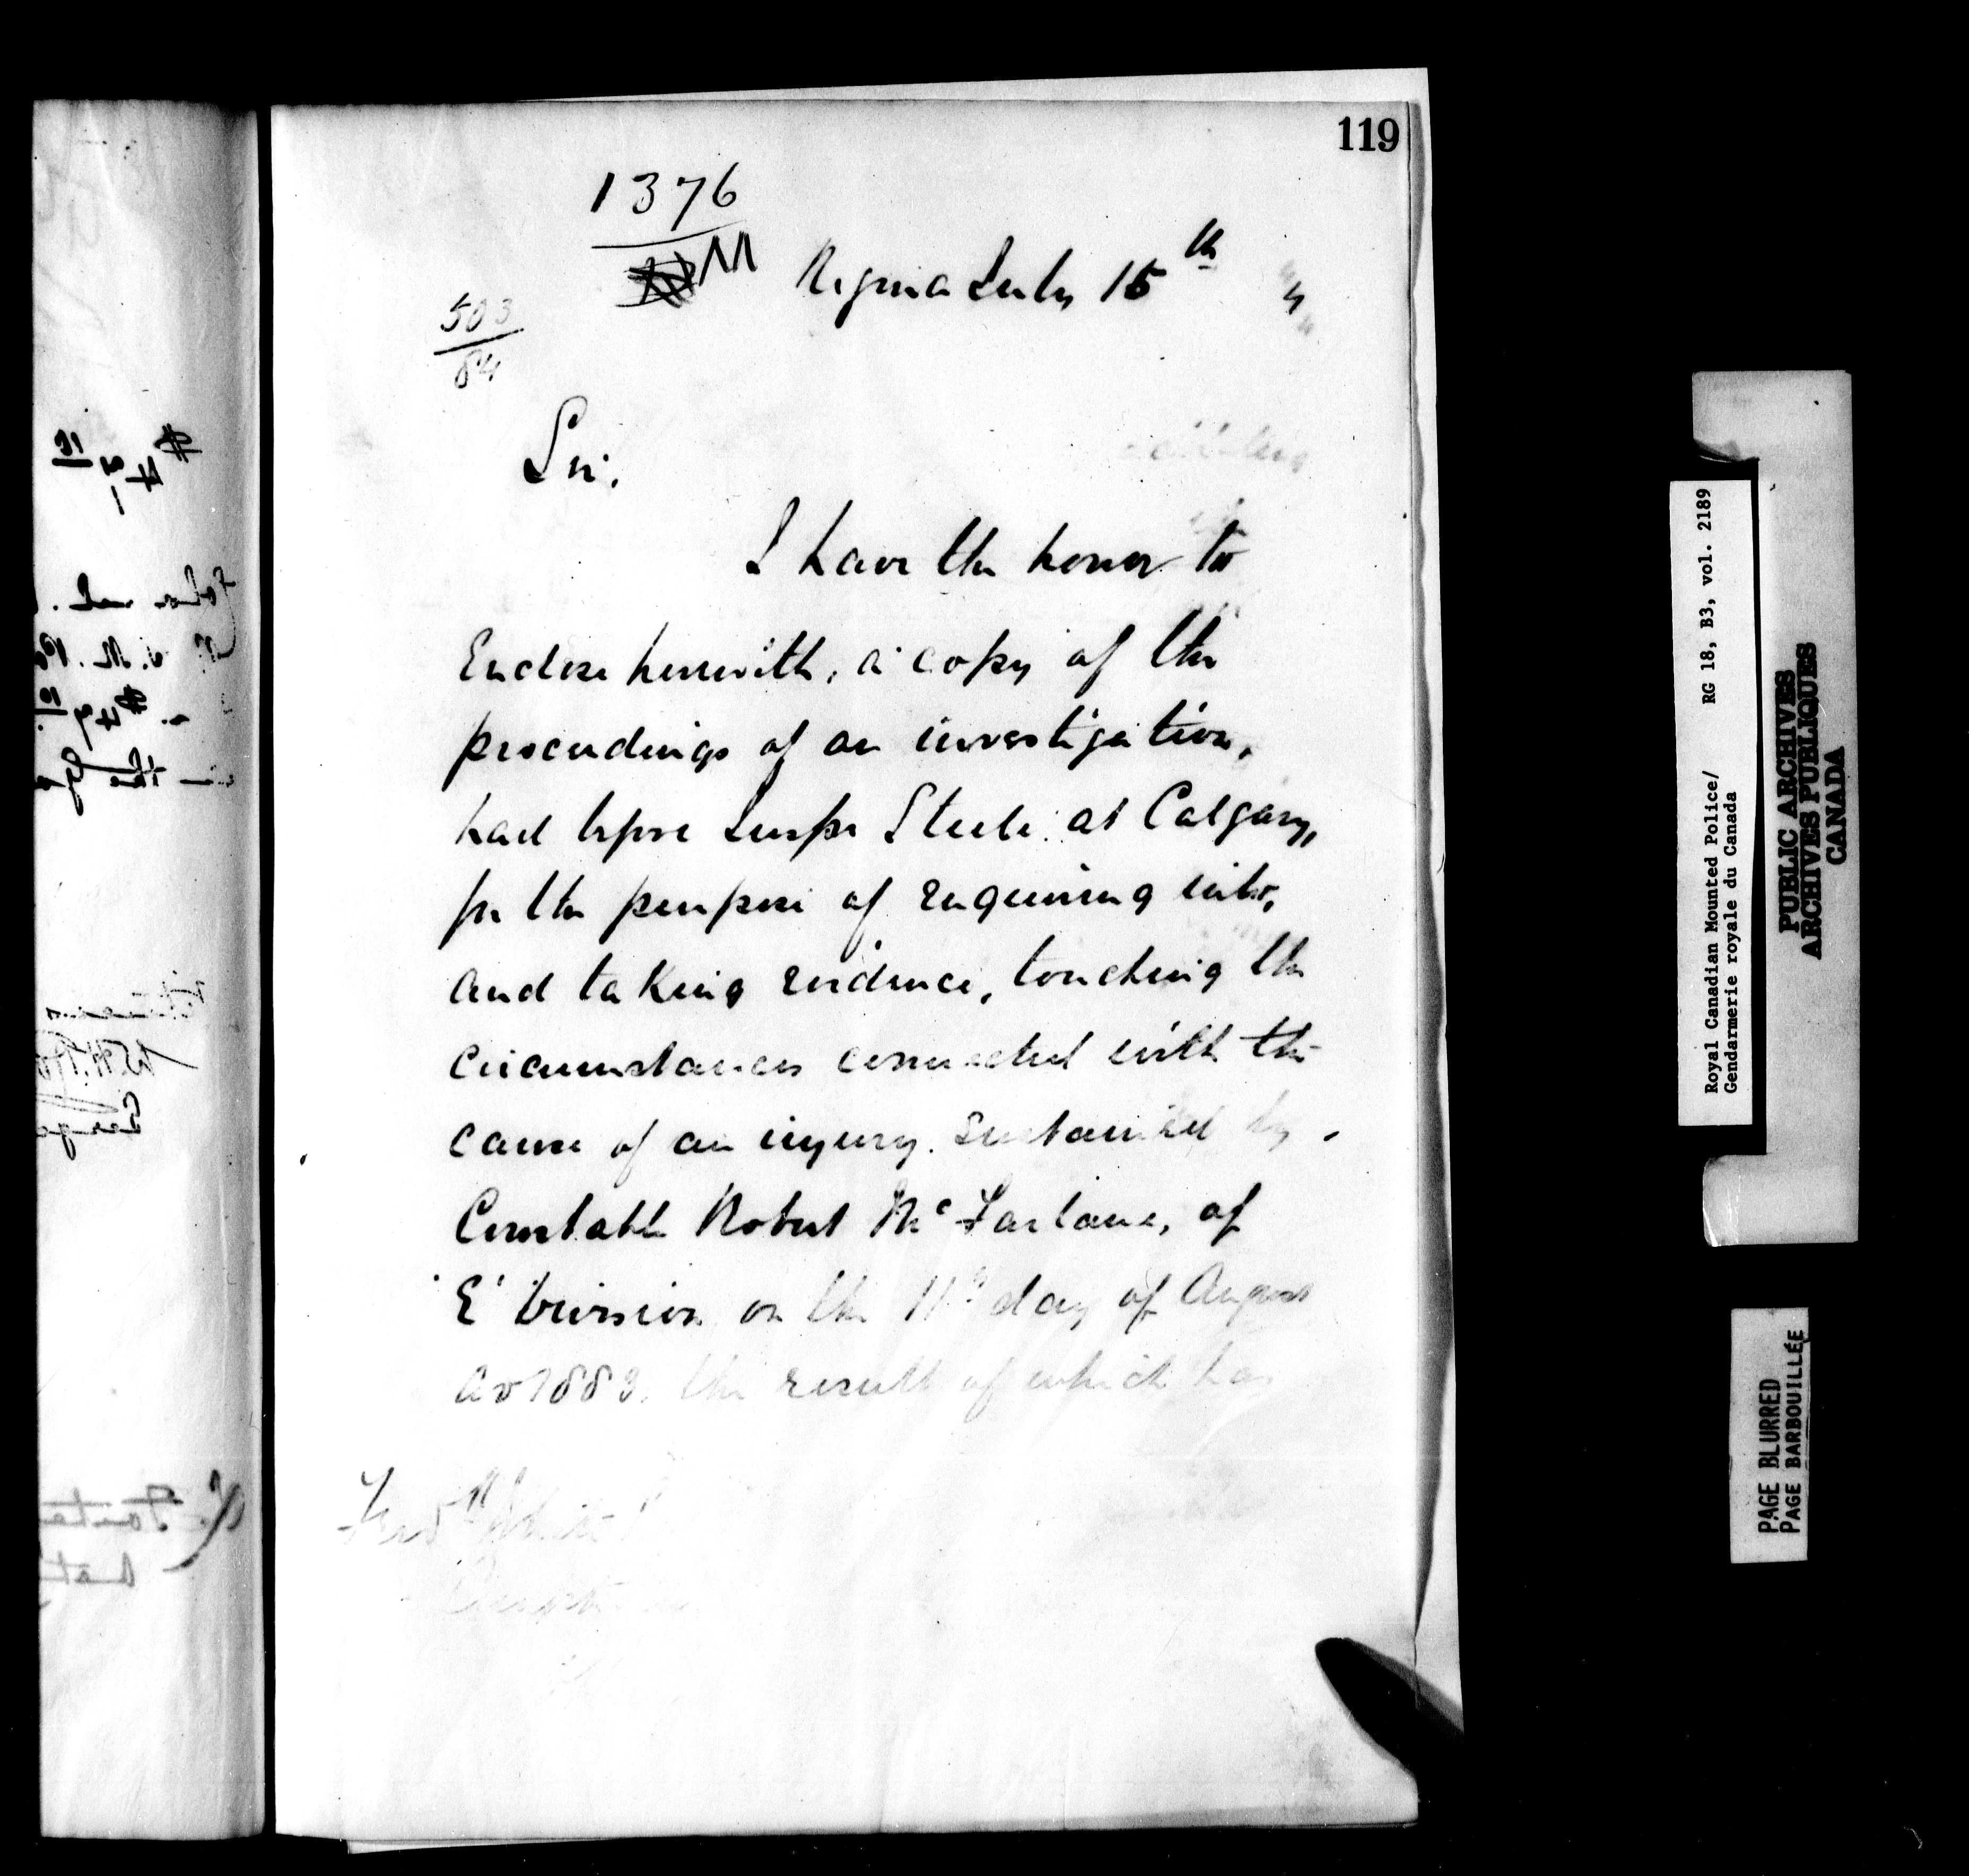 119
1376
M
Regina July 15th
503
84
Sir.
I have the honor to
Enclose herewith, a copy of the
proceedings of an investigation,
had before Supt Steele at Calgary,
for the purpose of enquiring into,
and taking evidence, touching the
circumstances connected with the
cause of an injury sustained by
Constable Robert McFarlane, of
E' Division on the 11th day of August
AD 1883, the result of which has
Fred White
Royal Canadian Mounted Police/ RG 18, B3, vol. 2189
Gendarmerie royale du Canada
PUBLIC ARCHIVES
ARCHIVES PUBLIQUES
CANADA
PAGE BLURRED
PAGE BARBOUILLÉE